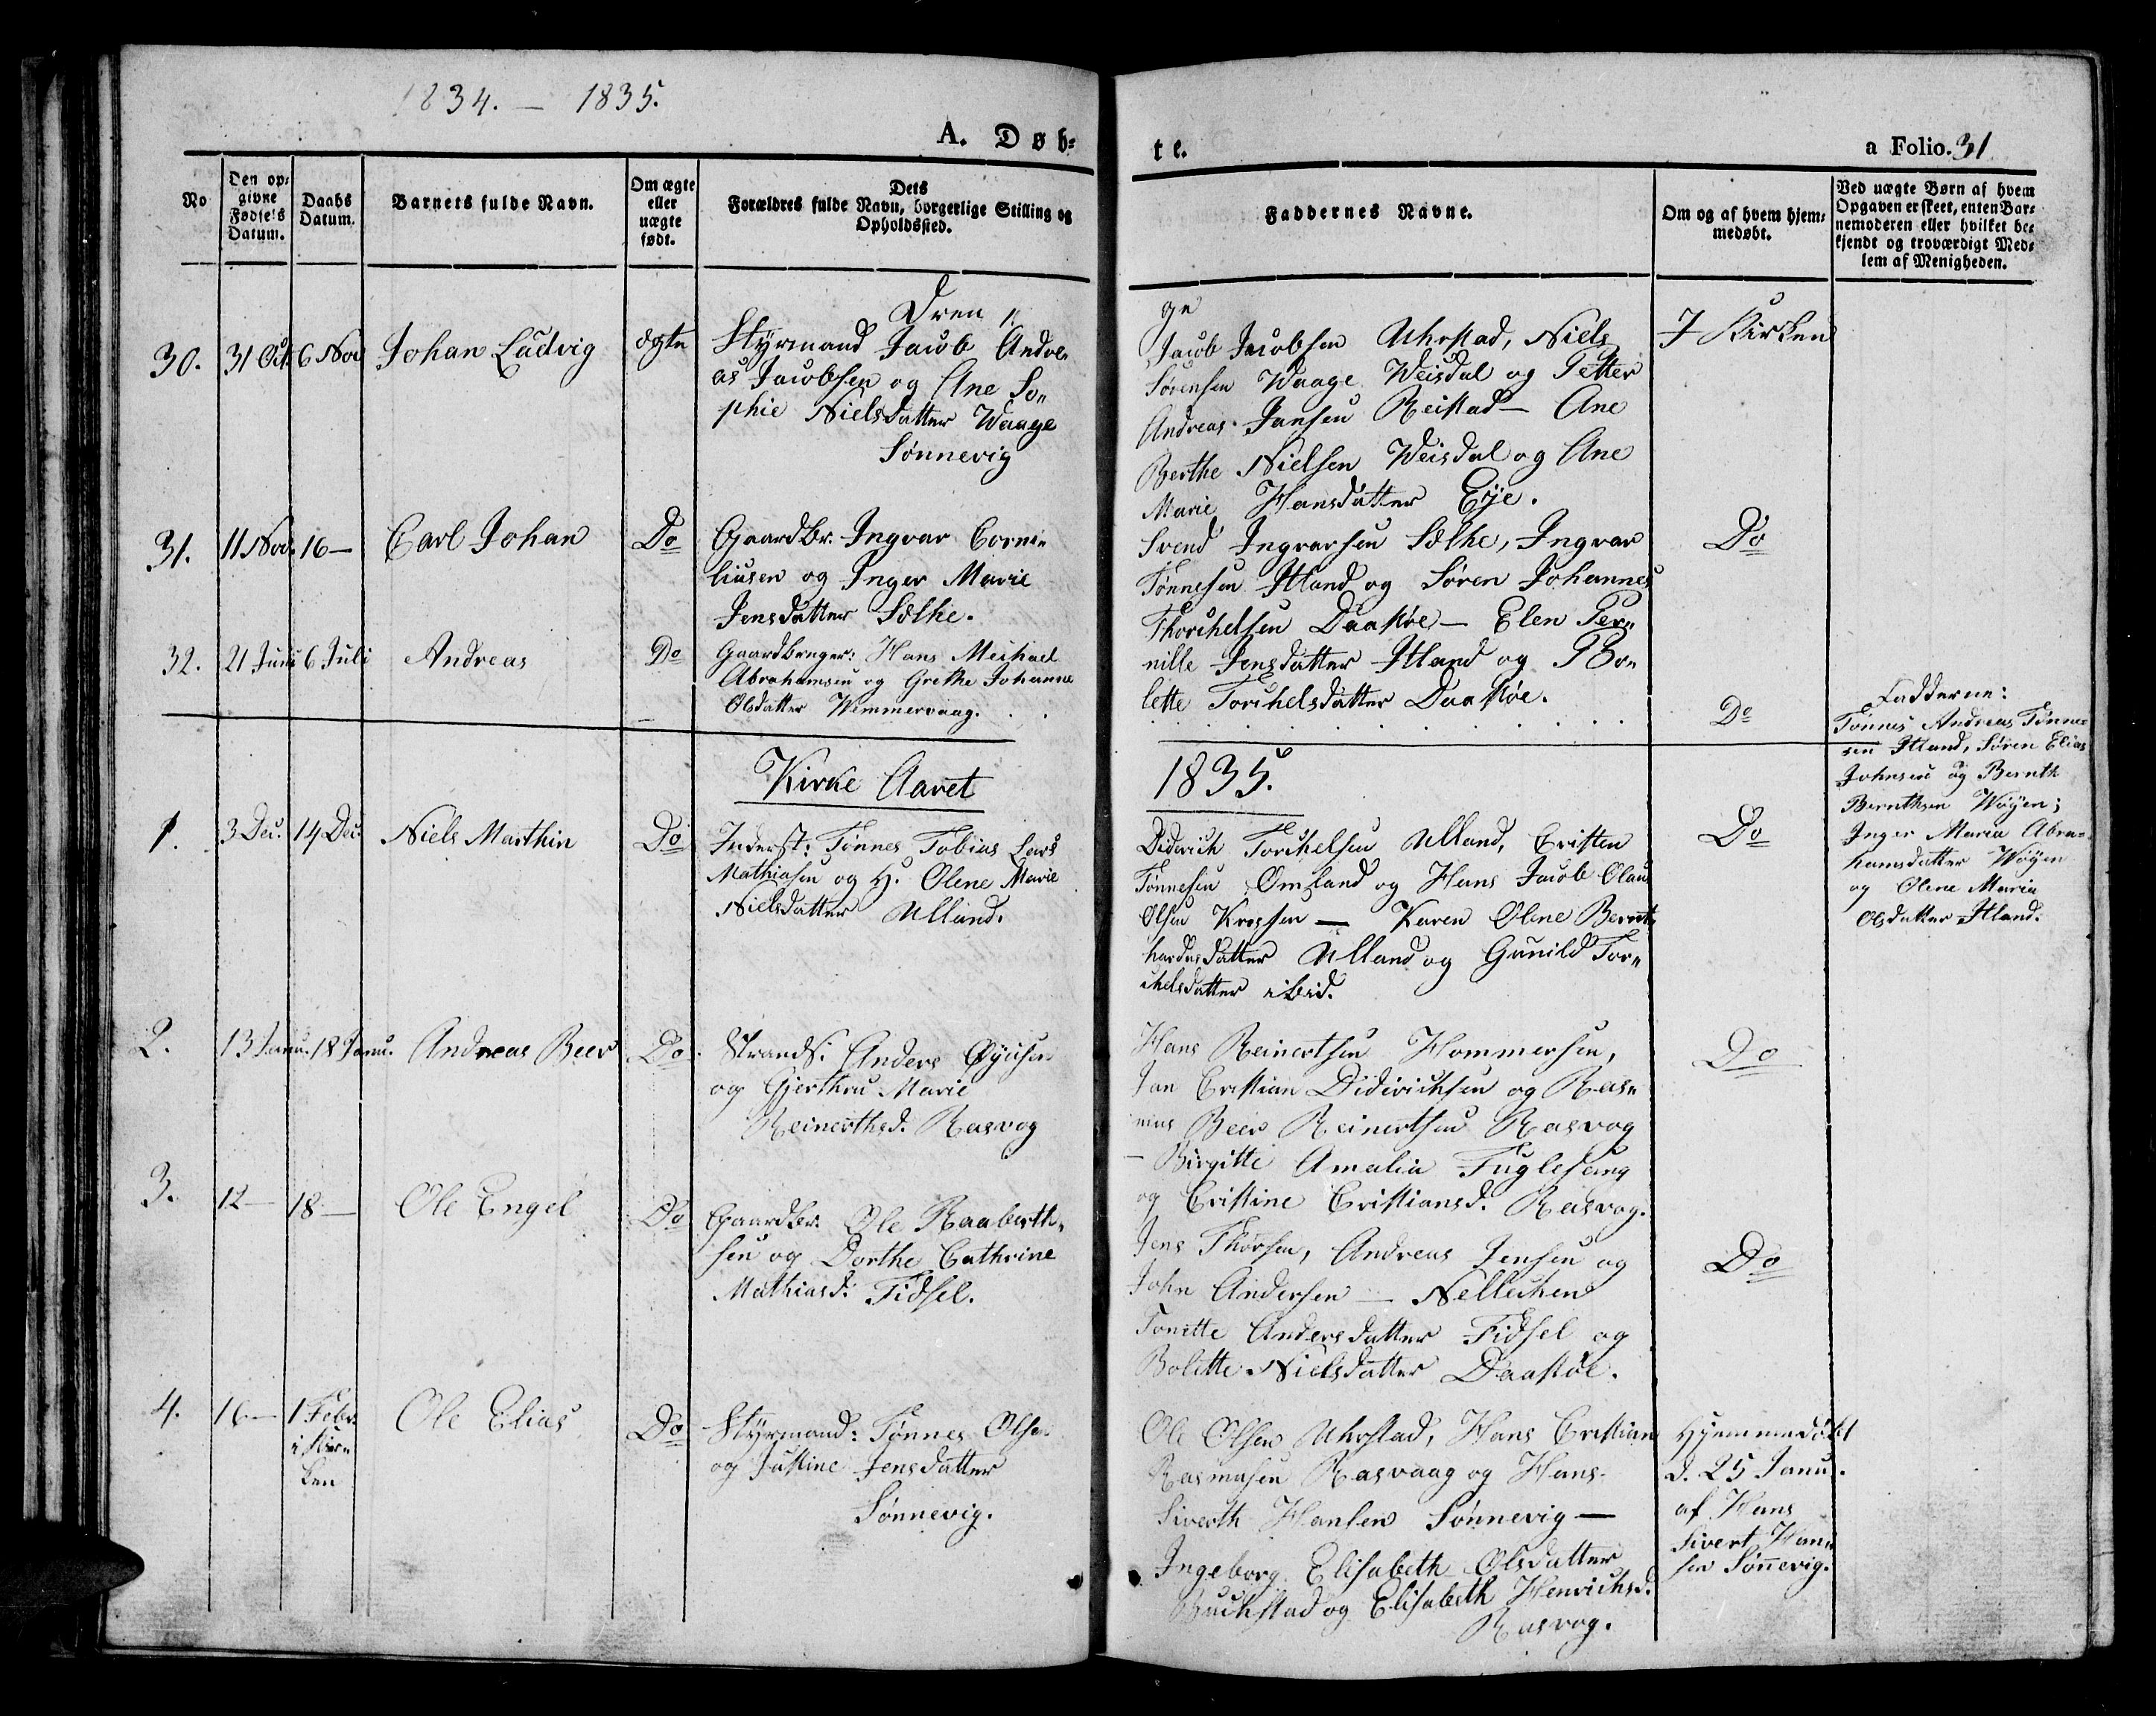 1834. — 1835.
A. Døb-
te.
a Folio. 31
No
Den op-
givne
Fødsels
Datum.
Daabs
Datum.
Barnets fulde Navn.
Om ægte
eller
uægte
født.
Dets
Forældres fulde Navn, borgerlige Stilling og
Opholdssted.
Faddernes Navne.
Om og af hvem hjem-
medøbt.
Ved uægte Børn af hvem
Opgaven er skeet, enten Bar-
nemoderen eller hvilket be-
kjendt og troværdigt Med-
lem af Menigheden.
Dren„
ge
30. 31 Oct. 6 Nov Johan Ludvig ægte
Styrmand Jacob Andre„
as Jacobsen og Ane So„
phie Nielsdatter Waage
Sönnevig
Jacob Jacobsen Uhrstad, Niels
Sörensen Waage Weisdal og Petter
Andreas Jansen Reistad — Ane
Berthe Nielsen Weisdal og Ane
Marie Hansdatter Eye.
I Kirken
31. 11 Nov. 16 — Carl Johan Do
Gaardbr. Ingvar Corne„
liusen og Inger Marie
Jensdatter Sælhe.
Svend Ingvarsen Sælhe, Ingvar
Tönnesen Itland og Sören Johannes
Thorchelsen Daaskøe — Elen Per„
nille Jensdatter Itland og Bo„
lette Torchelsdatter Daaskøe.
Do
32. 21 Juni 6 Juli Andreas Do
Gaardbruger: Hans Meikael
Abrahamsen og Grethe Johanne
Olsdatter Wemmervaag.
Do
Fadderne:
Tönnes Andreas Tönne-
sen Itland, Sören Elias
Johnsen og Bernth
Bernthsen Wöyen;
Inger Maria Abra-
hamsdatter Wöyen
og Olene Maria
Olsdatter Itland.
Kirke Aaret
1835.
1. 3 Dec. 14 Dec. Niels Marthin Do
Inderst: Tønnes Tobias Lars
Mathiasen og H. Olene Marie
Nielsdatter Ulland.
Diderich Torchelsen Ulland, Cristen
Tönnesen Omland og Hans Jacob Olaus
Olsen Krossen — Karen Olene Bernt„
hardusdatter Ulland og Gunild Tor„
chelsdatter ibid.
Do
2. 13 Janu. 18 Janu. Andreas Beer Do
Strands. Anders Öyusen
og Gjerthru Marie
Reinerthsd. Rasvog
Hans Reinertsen Hommersen,
Jan Cristian Didirichsen og Ras„
mus Beer Reinertsen Rasvog
— Birgitte Amalia Fuglesang
og Cristine Cristiansd. Rasvog.
Do
3. 12 — 18 — Ole Engel Do
Gaardbr. Ole Raaberth„
sen og Dorthe Cathrine
Mathiasd: Fidsel.
Jens Thorsen, Andreas Jensen og
John Andersen — Nellechen
Tonette Andersdatter Fidsel og
Bolette Nielsdatter Daaskøe.
Do
4. 16 — 1 Febr.
i Kir„
ken
Ole Elias Do
Styrmand: Tønnes Olsen
og Justine Jensdatter
Sønnevig.
Ole Olsen Uhrstad, Hans Cristian
Rasmusen Rasvaag og Hans
Siverth Hansen Sønnevig —
Ingeborg Elisabeth Olsdatter
Buchstad og Elisabeth Henrichsd.
Rasvog.
Hjemmedøbt
d. 25 Janu.
af Hans
Sivert Han„
sen Sønnevig.